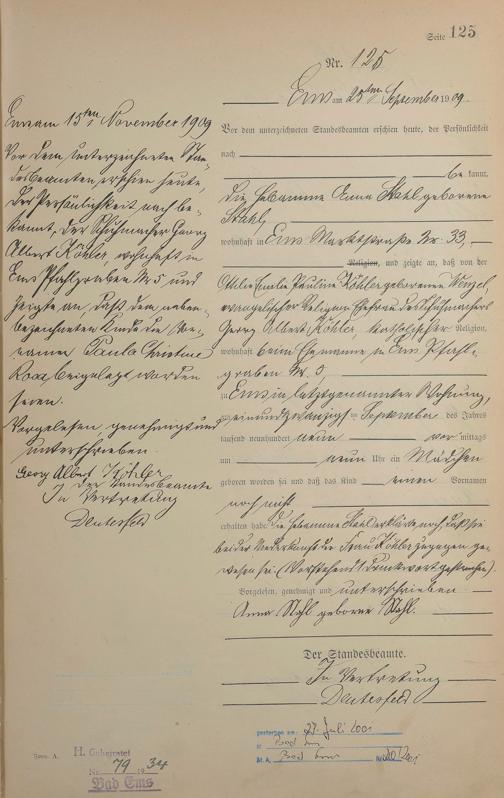 Seite 125
Nr. 125
Ems am 25ten September 1909.
Vor dem unterzeichneten Standesbeamten erschien heute, der Persönlichkeit
nach
be kannt,
die Hebamme Anna Stahl geborene
Stahl,
wohnhaft in Ems Marktstraße Nr. 33,
Religion, und zeigte an, daß von der
Ottilie Emilie Pauline Köhler geborenen Wenzel,
evangelischer Religion Ehefrau des Schuhmachers
Georg Albert Köhler, katholischer Religion,
wohnhaft beim Ehemanne in Ems Pfahl-
graben Nr. 5
zu Ems in letztgenannter Wohnung,
am einundzwanzigsten September des Jahres
tausend neunhundert neun vor mittags
um neun Uhr ein Mädchen
geboren worden sei und daß das Kind einen Vornamen
noch nicht
erhalten habe. Die Hebamme Stahl erklärte noch daß sie
bei der Niederkunft der Frau Köhler zugegen ge-
wesen sei. (Vorstehend 1 Druckwort gestrichen).
Vorgelesen, genehmigt und unterschrieben
Anna Stahl geborne Stahl.
Der Standesbeamte.
In Vertretung
Ems am 15ten November 1909
Vor dem unterzeichneten Stan-
desbeamten erschien heute,
der Persönlichkeit nach be-
kannt, der Schuhmacher Georg
Albert Köhler, wohnhaft in
Ems Pfahlgraben Nr 5 und
zeigte an, daß dem neben-
bezeichneten Kinde die Vor-
namen Paula Christine
Rosa beigelegt worden
seien.
Vorgelesen, genehmigt und
unterschrieben
Georg Albert Köhler
der Standesbeamte
In Vertretung
gestorben am: 27. Juli 2001
in Bad Ems
St. A. Bad Ems
Form. A.
H. Geheiratet
Nr. 79 1934
Bad Ems